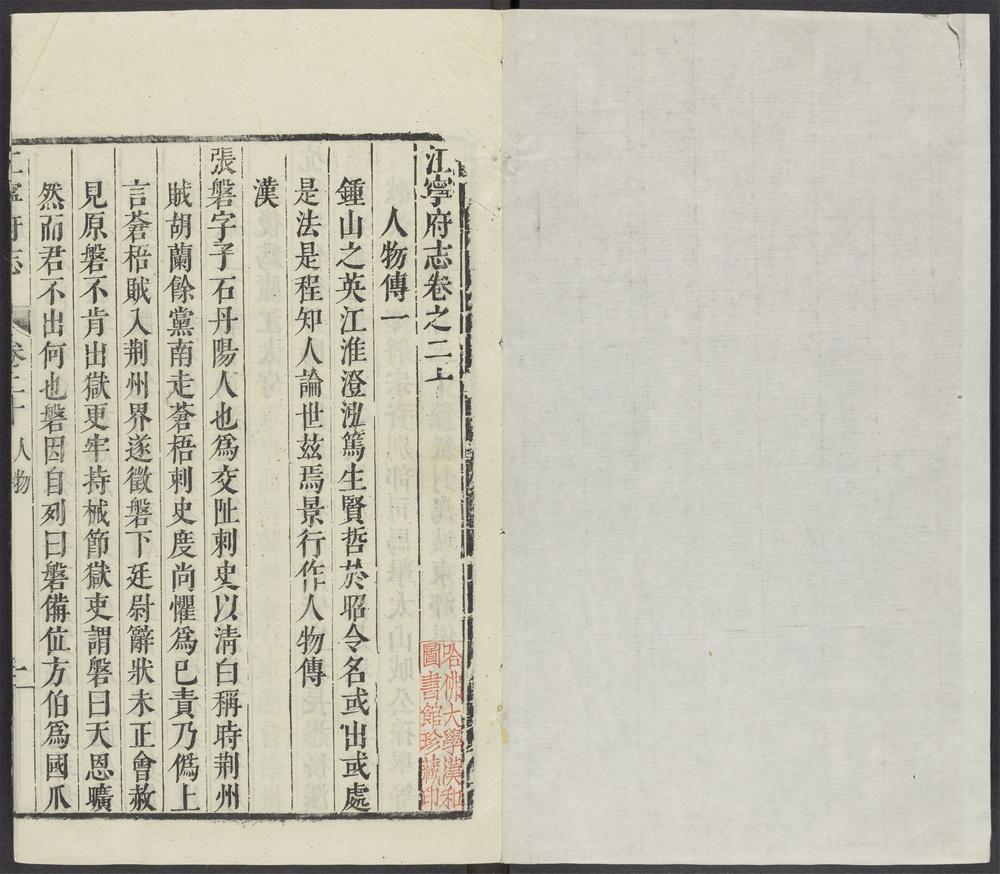 江寧府志卷之二十
人物傳一
鍾山之英江淮澄泓篤生賢哲於昭令名或出或處
是法是程知人論世兹焉景行作人物傳
漢
張磐字子石丹陽人也爲交阯刺史以清白稱時荆州
賊胡蘭餘黨南走蒼梧刺史度尚懼爲已責乃僞上
言蒼梧賊入荆州界遂徵磐下廷尉辭狀未正會赦
見原磐不肯出獄更牢持械節獄吏謂磐曰天恩曠
然而君不出何也磐因自列曰磐備位方伯爲國爪
江寧府志 卷二十 人物 一
哈佛大學漢和
圖書館珍藏印